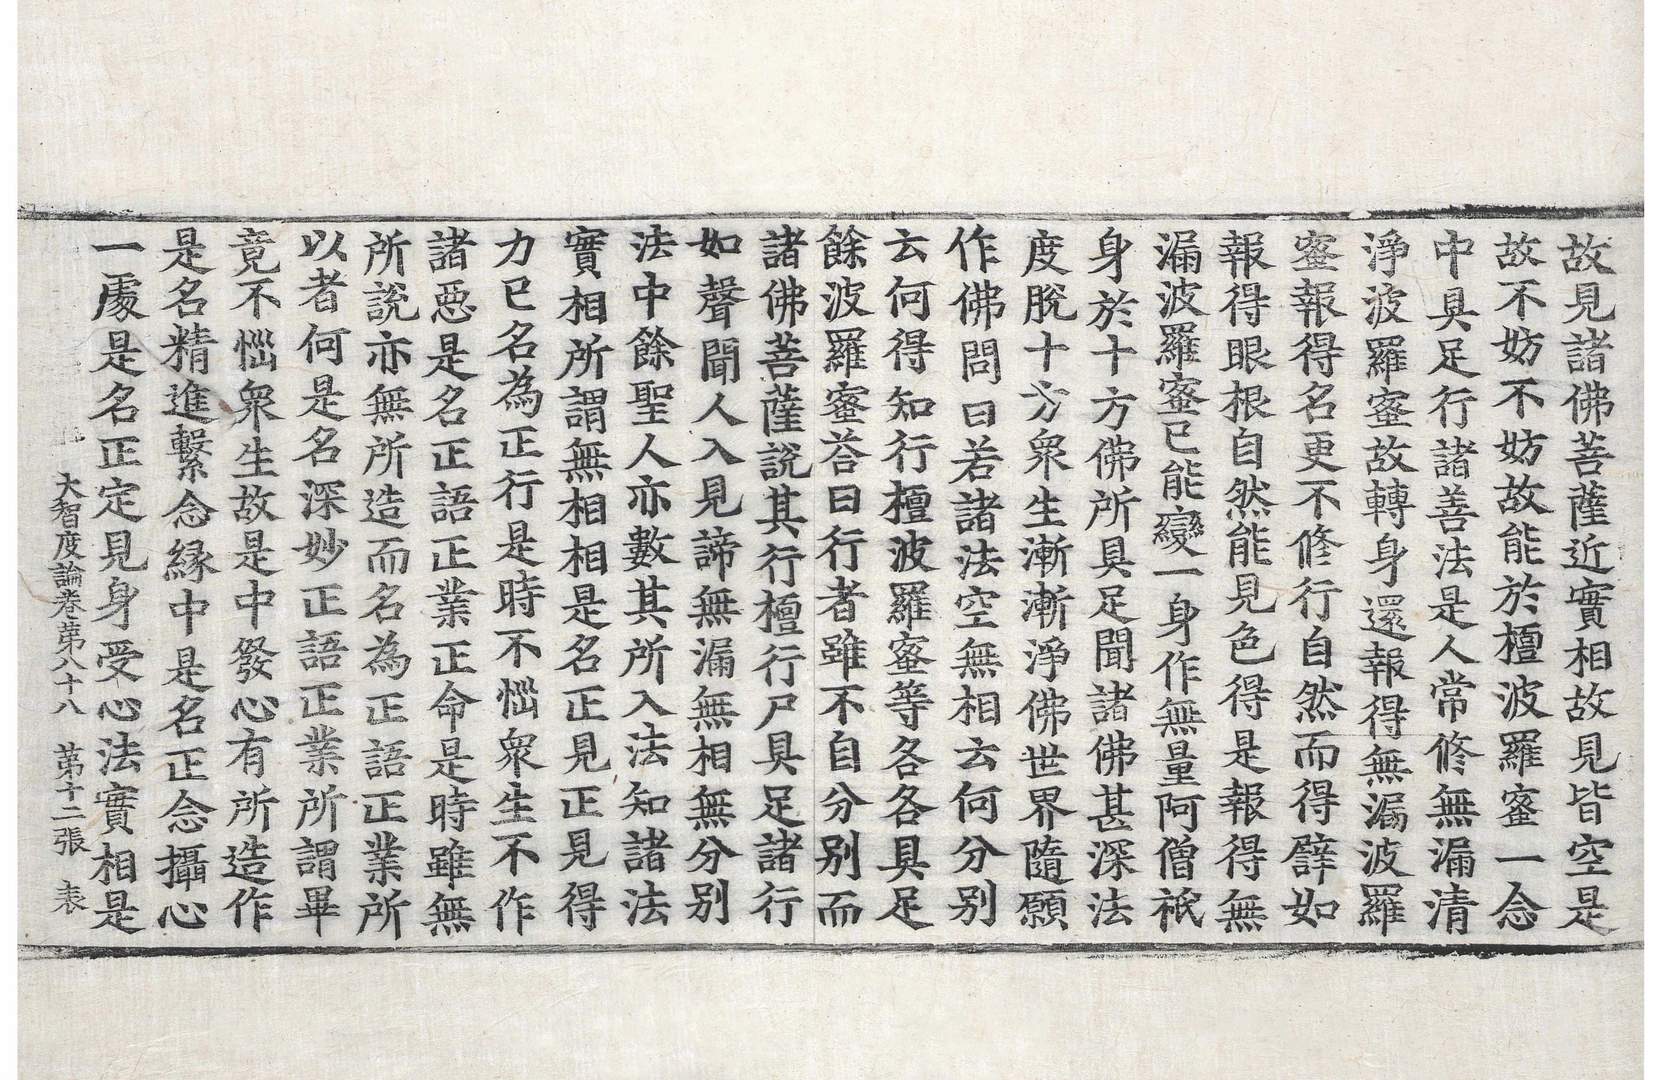 故見諸佛菩薩近實相故見皆空是
故不妨不妨故能於檀波羅蜜一念
中具足行諸善法是人常修無漏清
淨波羅蜜故轉身還報得無漏波羅
蜜報得名更不修行自然而得譬如
報得眼根自然能見色得是報得無
漏波羅蜜已能變一身作無量阿僧祇
身於十方佛所具足聞諸佛甚深法
度脫十方衆生漸漸淨佛世界隨願
作佛問曰若諸法空無相云何分別
云何得知行檀波羅蜜等各各具足
餘波羅蜜荅曰行者雖不自分別而
諸佛菩薩說其行檀行尸具足諸行
如聲聞人入見諦無漏無相無分別
法中餘聖人亦數其所入法知諸法
實相所謂無相相是名正見正見得
力已名為正行是時不惱衆生不作
諸惡是名正語正業正命是時雖無
所說亦無所造而名為正語正業所
以者何是名深妙正語正業所謂畢
竟不惱衆生故是中發心有所造作
是名精進繫念緣中是名正念攝心
一處是名正定見身受心法實相是
大智度論卷第八十八 第十二張 表